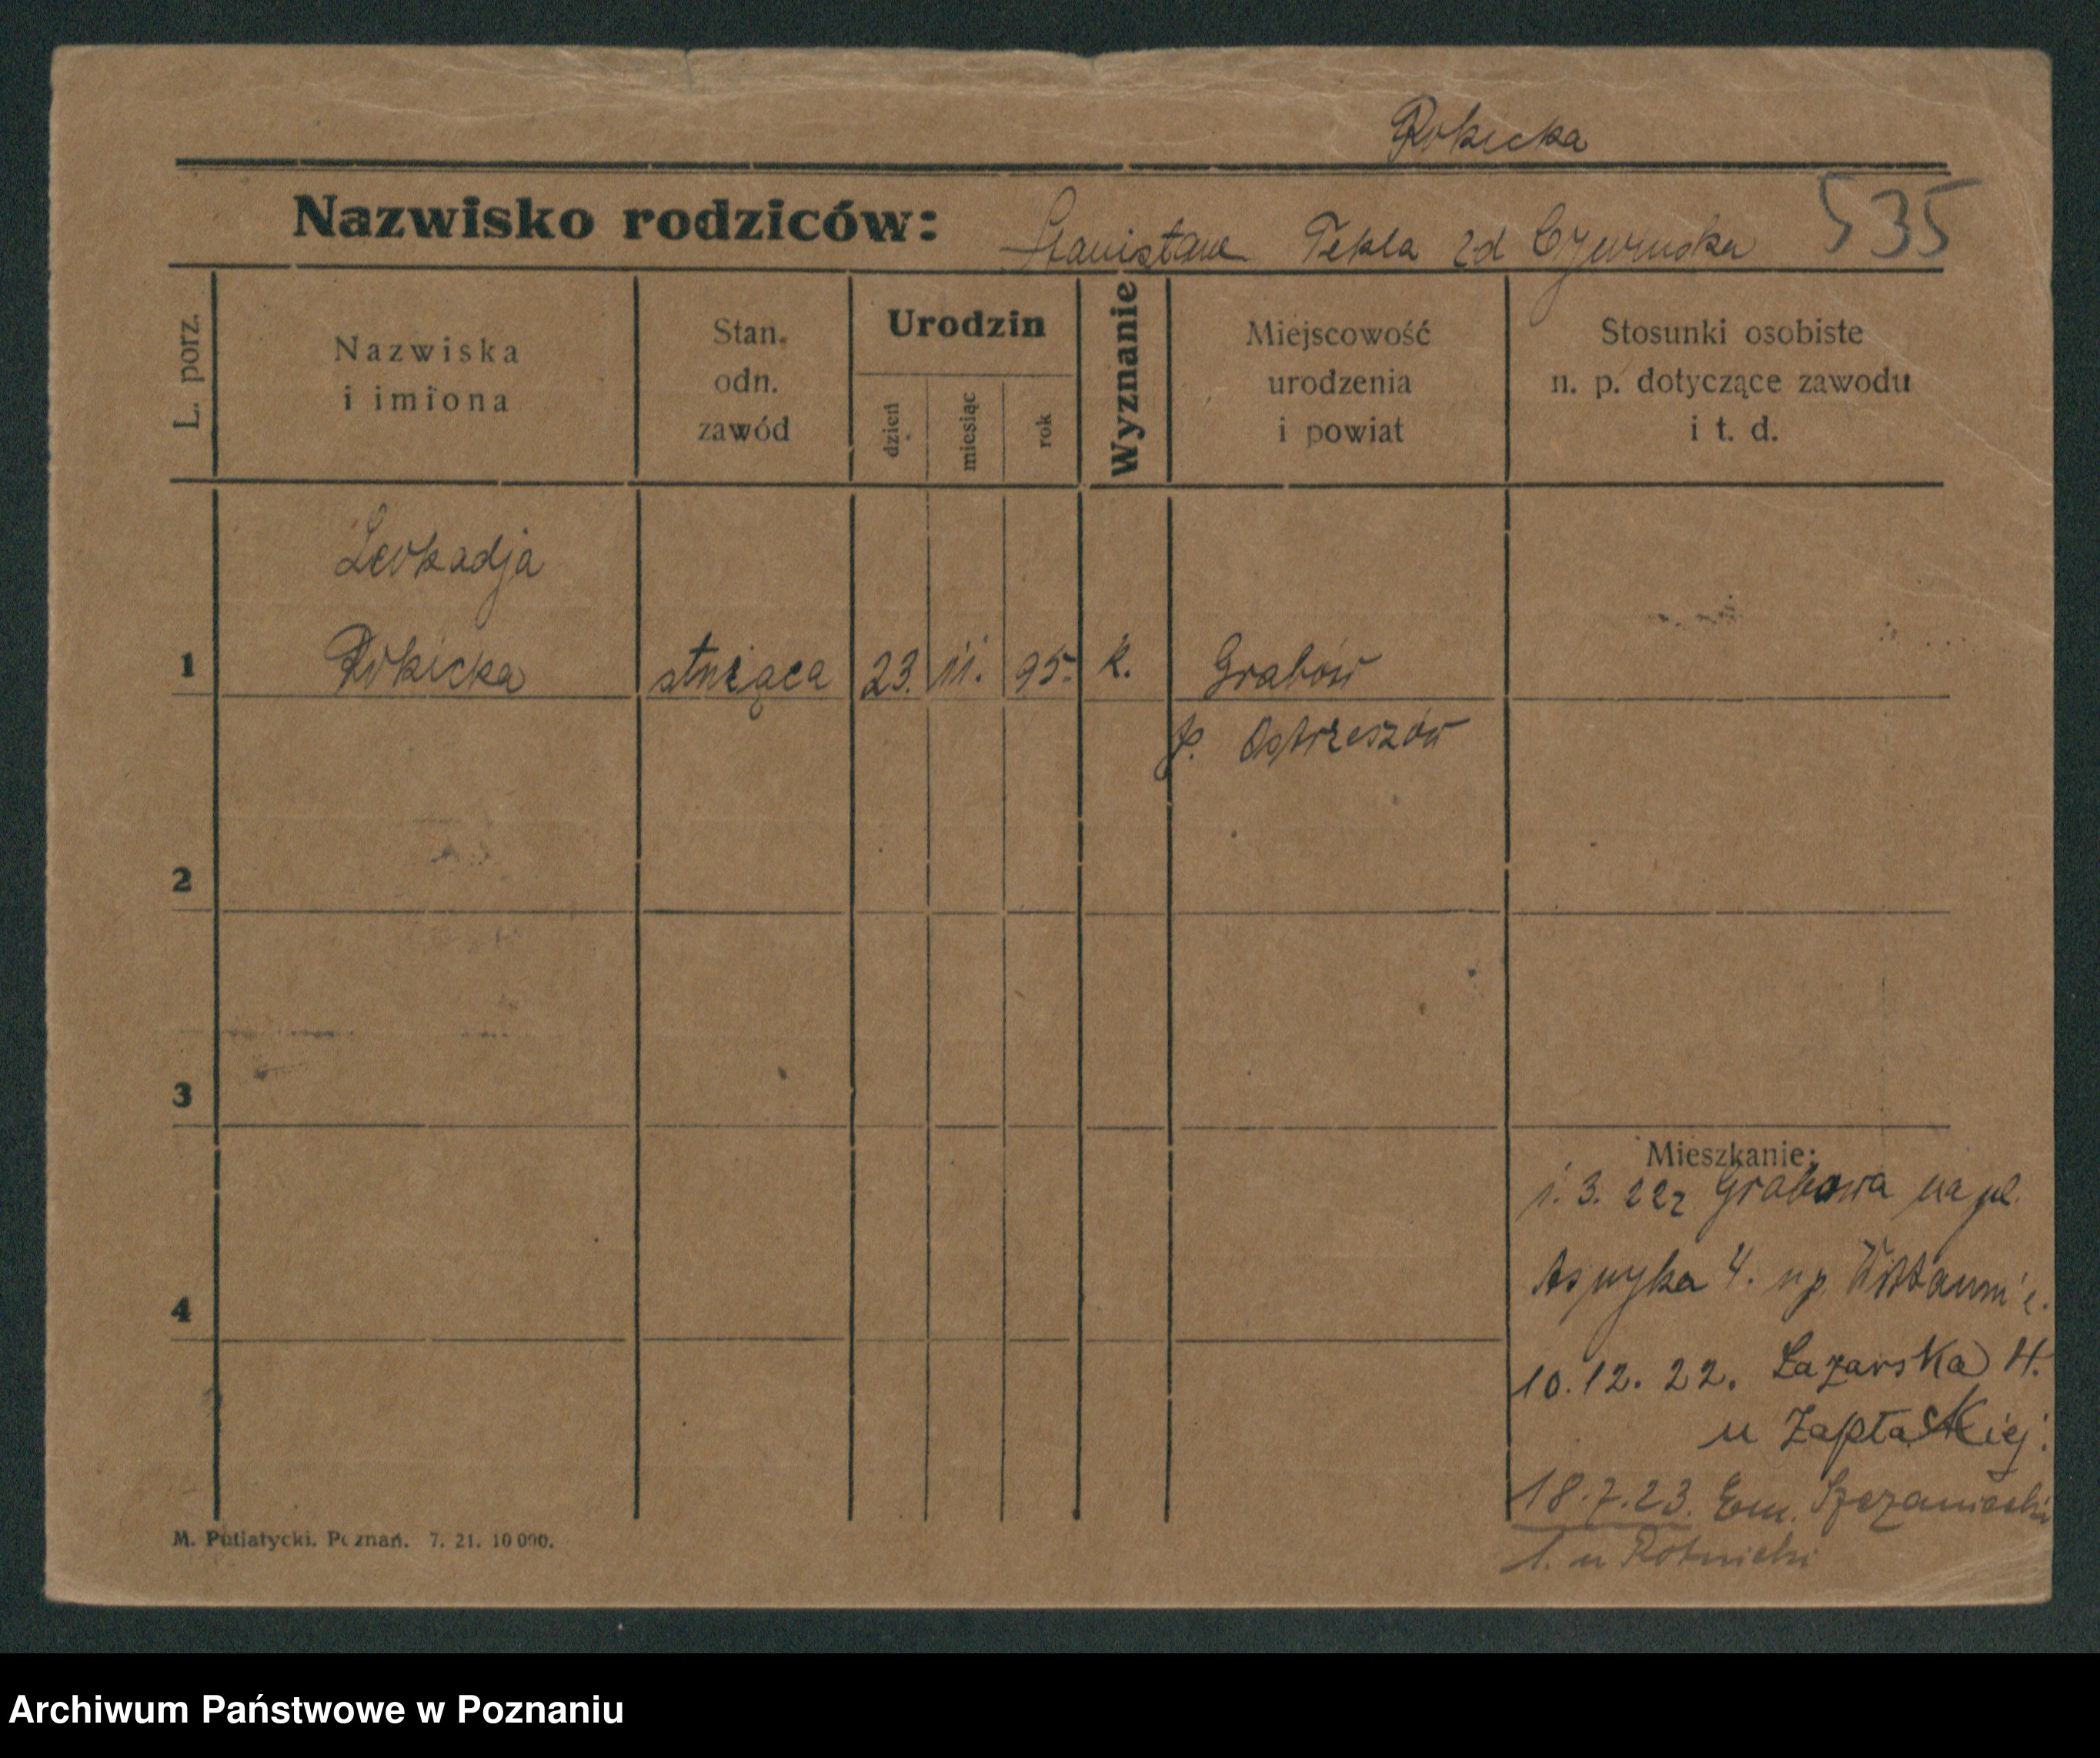 Rokicka
Nazwisko rodziców: Stanisław Tekla zd 535
L. porz.
Nazwiska
i imiona
Stan.
odn.
zawód
Urodzin
dzień
miesiąc
rok
Wyznanie
Miejscowość
urodzenia
i powiat
Stosunki osobiste
n. p. dotyczące zawodu
i t. d.
Leokadja
1 Rokicka służąca 23. 11. 95. k. Grabów
p. Ostrzeszów
2
3
Mieszkanie:
1. 3. 22 z Grabowa na pl.
4. np.
4
10. 12. 22. Łazarska 4.
u Zapłaskiej.
18. 7. 23. Em. Szczaniecki
1. u
M. Putiatycki. Poznań. 7. 21. 10 000.
Archiwum Państwowe w Poznaniu